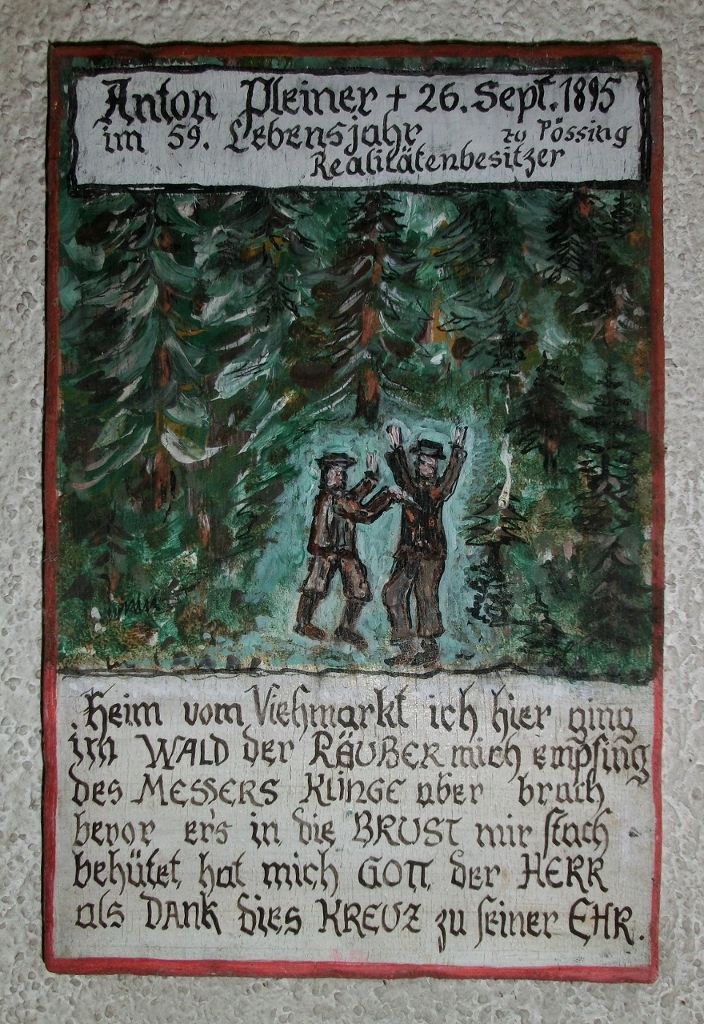 Anton Pleiner + 26. Sept. 1895
im 59. Lebensjahr zu Pössing
Realitätenbesitzer
Heim vom Viehmarkt ich hier ging
im WALD der RÄUBER mich empfing
des MESSERS KLINGE aber brach
bevor er's in die BRUST mir stach
behütet hat mich GOTT der HERR
als DANK dies KREUZ zu seiner EHR.